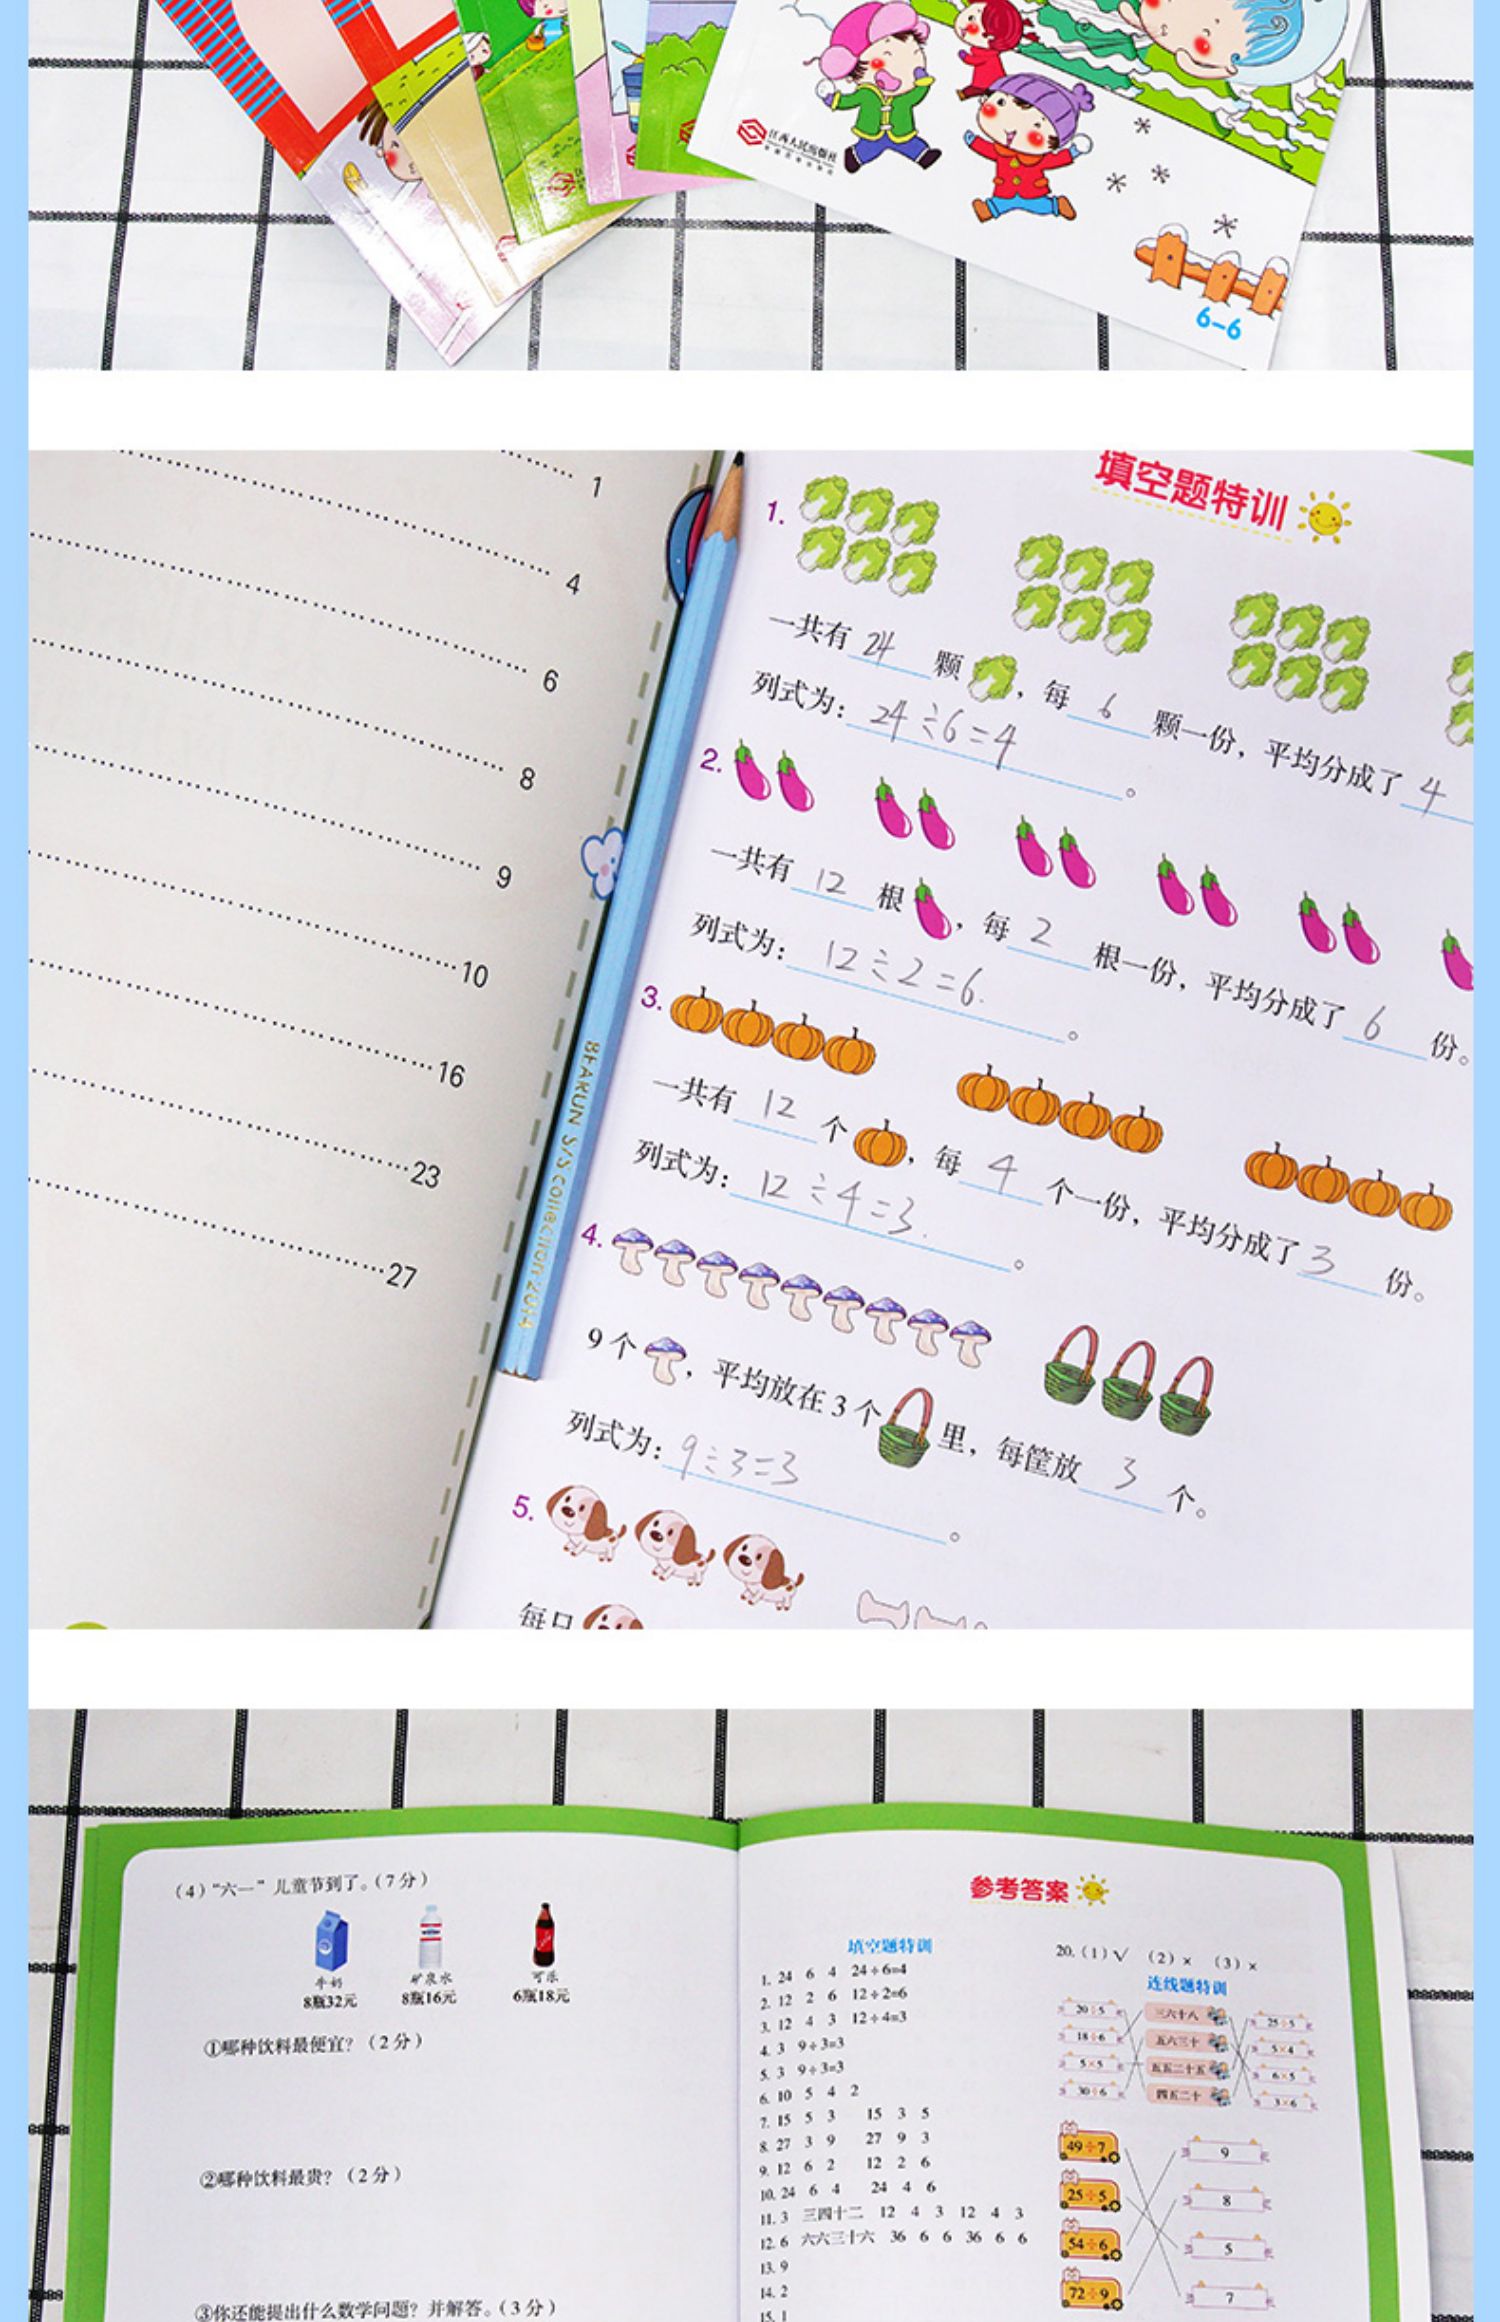 江西人民出版社
6-6
1
4
6
8
9
10
16
23
27
BEAKUN S/S COllECTION 2014
填空题特训
1.
一共有 24 颗 ，每 6 颗一份，平均分成了 4
列式为：24÷6=4 。
2.
一共有 12 根 ，每 2 根一份，平均分成了 6 份。
列式为：12÷2=6. 。
3.
一共有 12 个 ，每 4 个一份，平均分成了 3 份。
列式为：12÷4=3. 。
4.
9个 ，平均放在3个 里，每筐放 3 个。
列式为：9÷3=3 。
5.
每只
(4)“六一”儿童节到了。(7分)
牛奶 矿泉水 可乐
8瓶32元 8瓶16元 6瓶18元
①哪种饮料最便宜？(2分)
②哪种饮料最贵？(2分)
③你还能提出什么数学问题？并解答。(3分)
参考答案
填空题特训
1. 24 6 4 24÷6=4
2. 12 2 6 12÷2=6
3. 12 4 3 12÷4=3
4. 3 9÷3=3
5. 3 9÷3=3
6. 10 5 4 2
7. 15 5 3 15 3 5
8. 27 3 9 27 9 3
9. 12 6 2 12 2 6
10. 24 6 4 24 4 6
11. 3 三四十二 12 4 3 12 4 3
12. 6 六六三十六 36 6 6 36 6 6
13. 9
14. 2
15. 1
20. (1)√ (2)× (3)×
连线题特训
20÷5 三六十八 25÷5
18÷6 五六三十 5×4
5×5 五五二十五 6×5
30÷6 四五二十 3×6
49÷7 9
25÷5 8
54÷6 5
72÷9 7